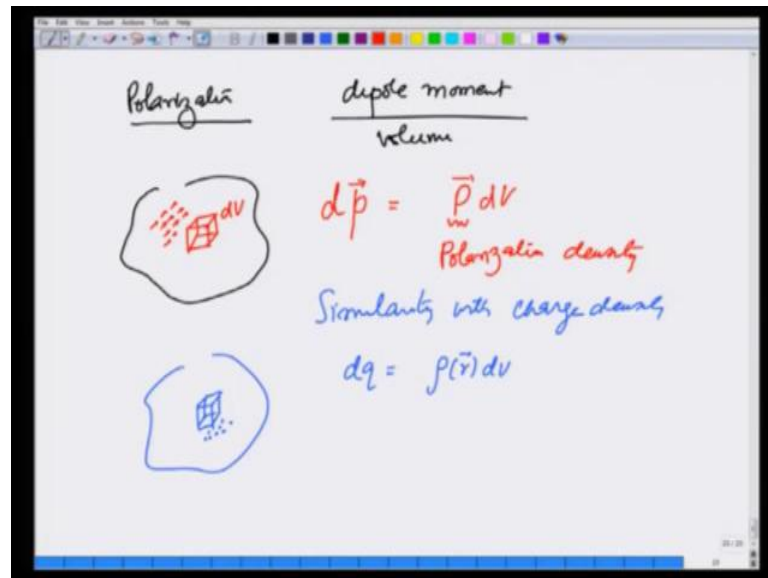 File Edit View Insert Actions Tools Help
Polarization dipole moment
volume
dV
d\vec{p} = \vec{P} dV
Polarization density
Similarity with charge density
dq = ρ(\vec{r}) dv